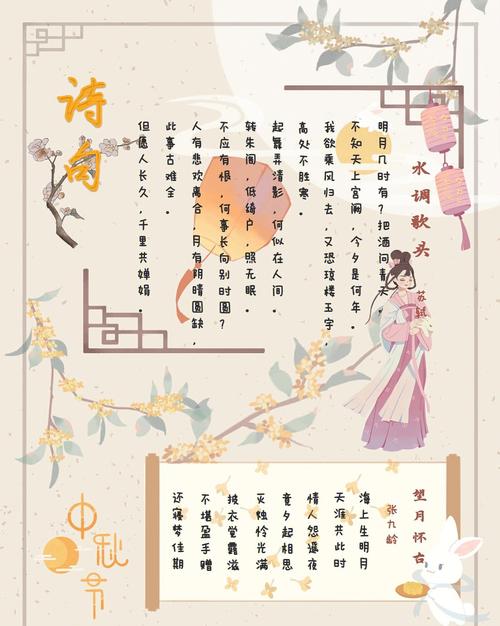 诗句
水调歌头
苏轼
明月几时有?把酒问青天。
不知天上宫阙,今夕是何年。
我欲乘风归去,又恐琼楼玉宇,
高处不胜寒。
起舞弄清影,何似在人间。
转朱阁,低绮户,照无眠。
不应有恨,何事长向别时圆?
人有悲欢离合,月有阴晴圆缺,
此事古难全。
但愿人长久,千里共婵娟。
望月怀古
张九龄
海上生明月
天涯共此时
情人怨遥夜
竟夕起相思
灭烛怜光满
披衣觉露滋
不堪盈手赠
还寝梦佳期
中秋节